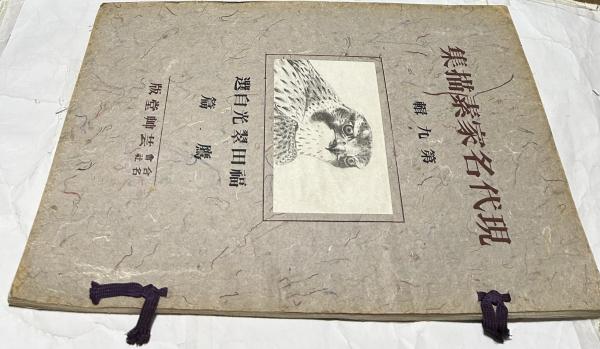 現代名家素描集
第九輯
福田翠光自選
鷹・篇
合名會社 芸艸堂版